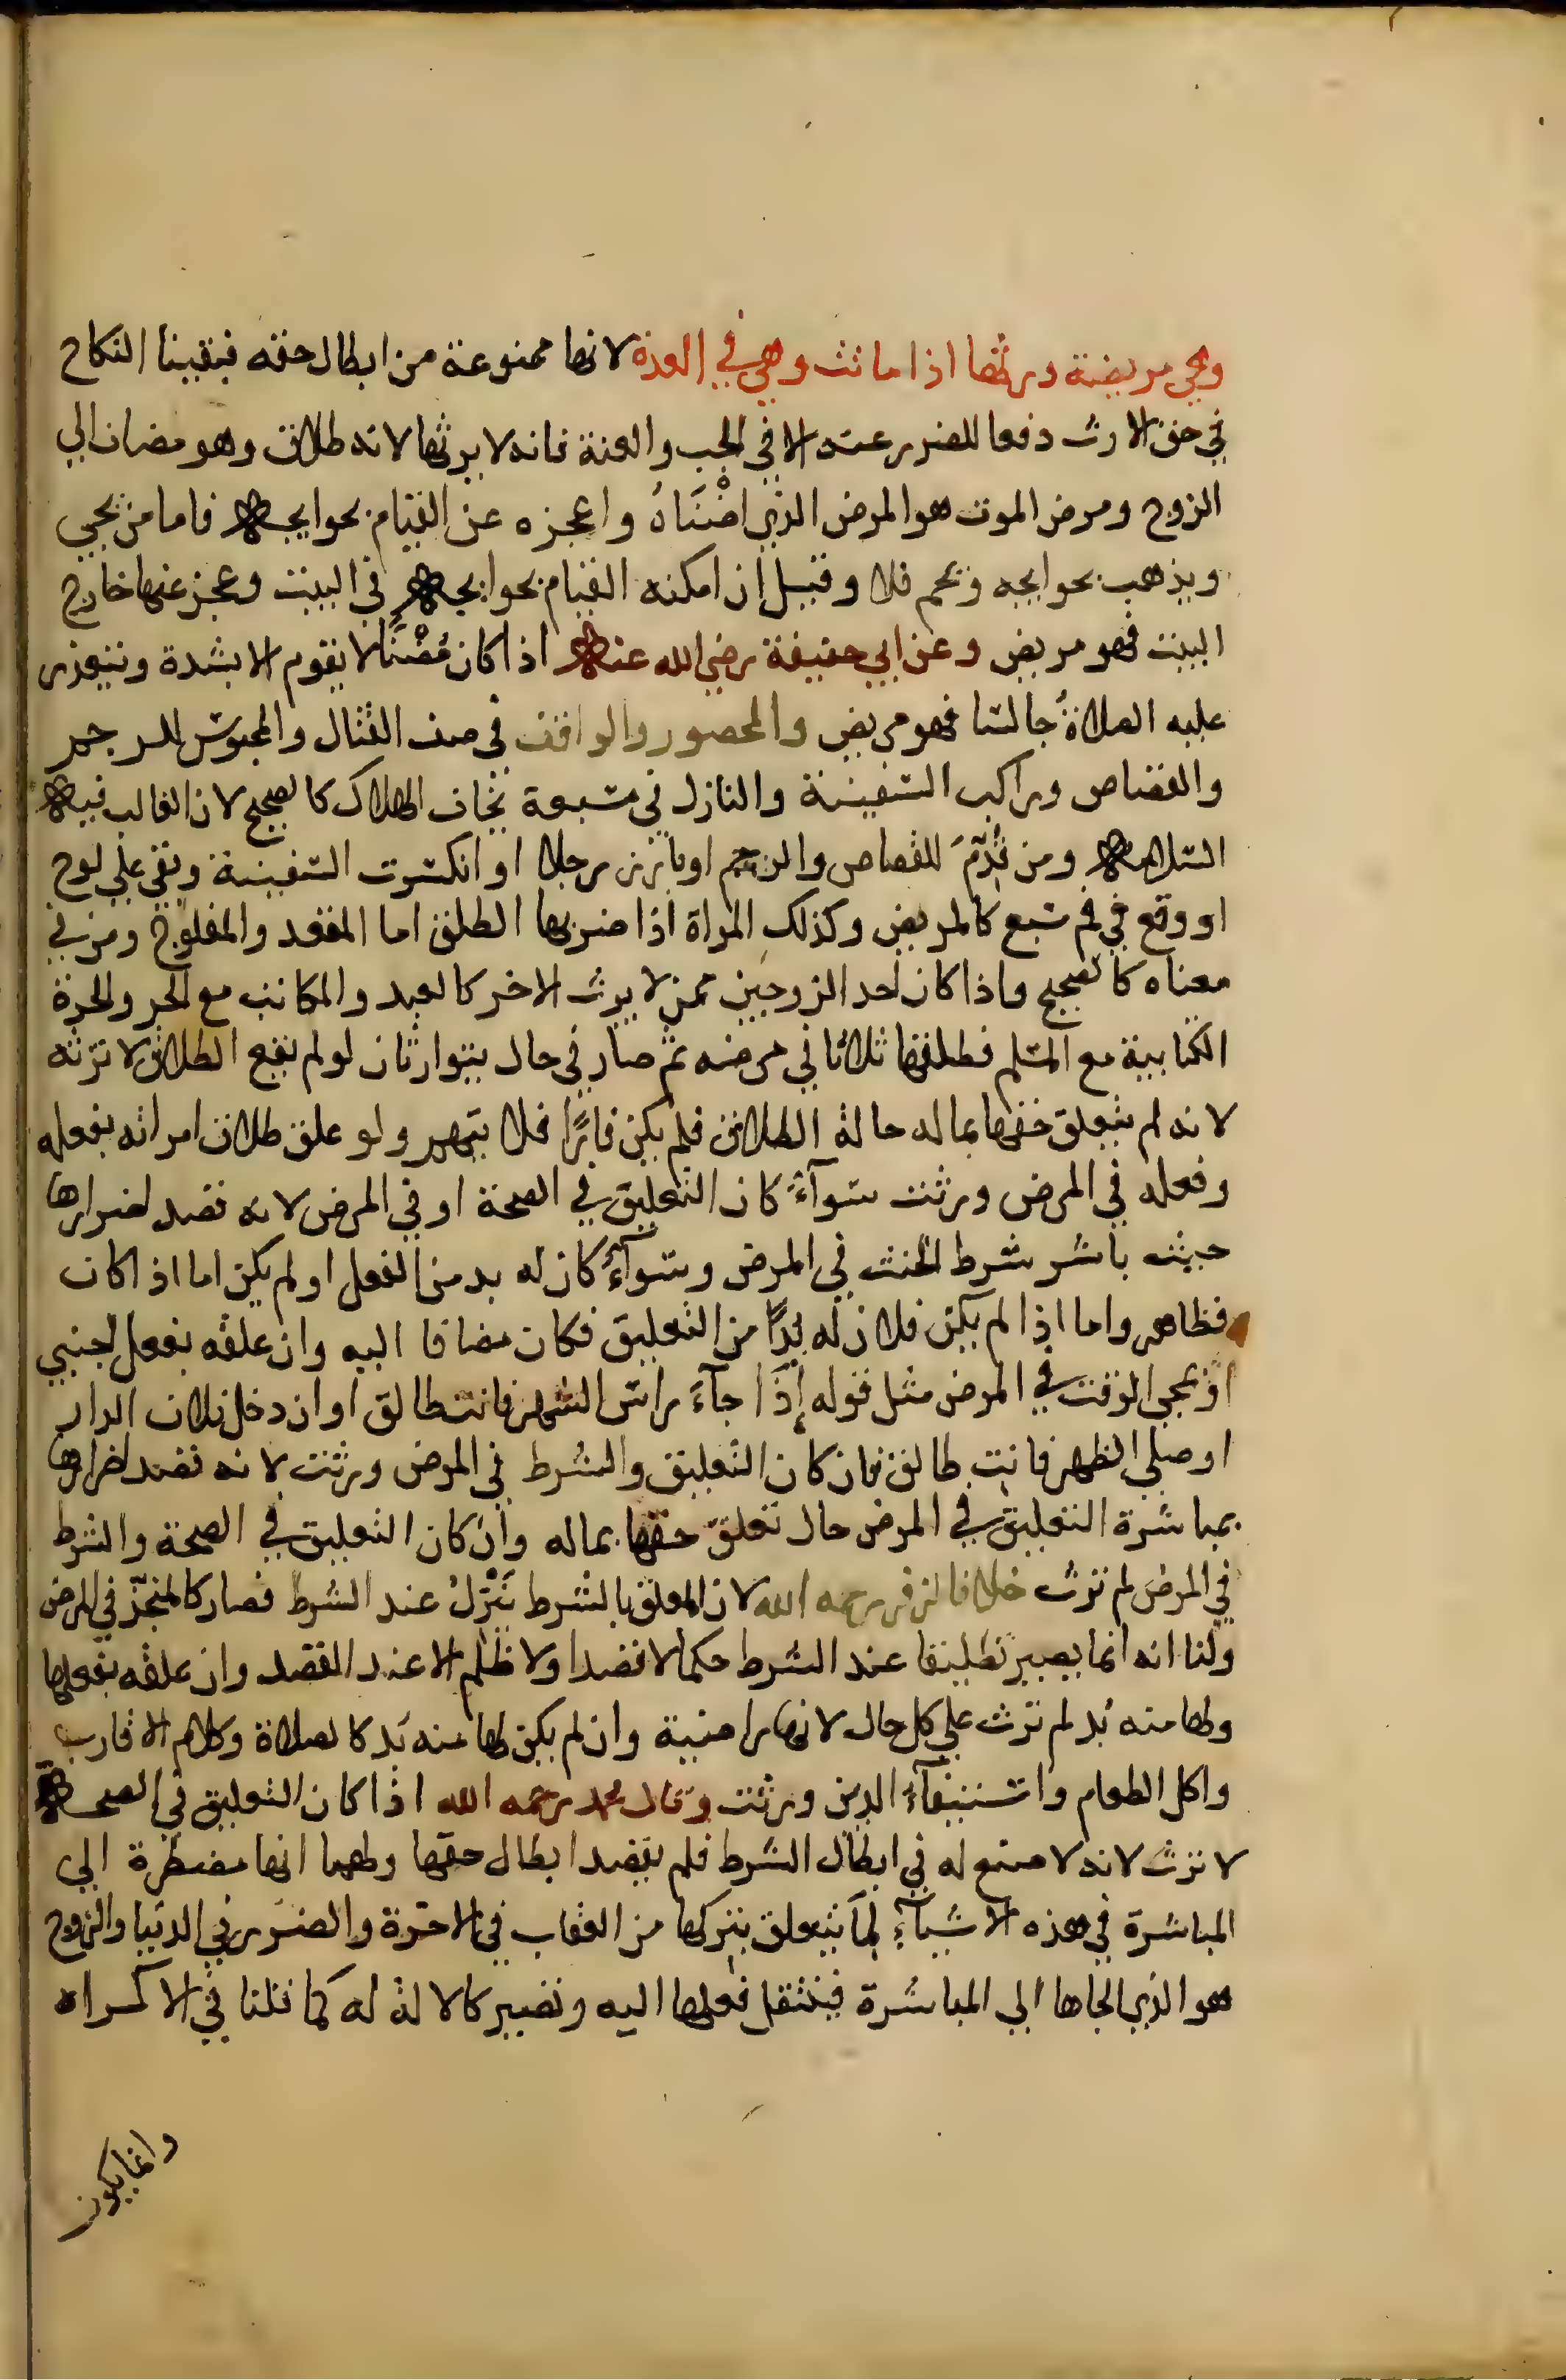 وهي مريضة ورثها اذا ماتت وهي في العدة لانها ممنوعة من ابطال حقه فبقينا النكاح
في حق الارث دفعا للضرر عنه الا في الجب والعنة فانه لا يرثها لانه طلاق وهو مضاف الي
الزوج ومرض الموت هو المرض الذي اضْنَاهُ واعجزه عن القيام بحوايجه فاما من يجي
ويذهب بحوايجه ويحم فلا وقيل ان امكنه القيام بحوايجه في البيت وعجز عنها خارج
البيت فهو مريض وعن ابي حنيفة رضي الله عنه اذا كان مُضْنًا لا يقوم الا بشدة وتتعذر
عليه الصلاةُ جالسا فهو مريض والمحصور والواقف في صف القتال والمحبوس للرجم
والقصاص وراكب السفينة والنازل في مسبعة يخاف الهلاك كالصحيح لان الغالب فيه
السلامه ومن قُدِّمَ للقصاص والرجم او بارز رجلا او انكسرت السفينة وبقي علي لوح
او وقع في فم سبع كالمريض وكذلك المراة اذا ضربها الطلق اما المقعد والمفلوج ومن في
معناه كالصحيح واذا كان احد الزوجين ممن لا يرث الاخر كالعبد والمكاتب مع الحر والحرة
الكتابية مع المسلم فطلقها ثلاثا في مرضه ثم صار في حال يتوارثان لو لم يقع الطلاق لا ترثه
لانه لم يتعلق حقها بماله حالة الطلاق فلم يكن فارًّا فلا يتهم ولو علق طلاق امراته بفعله
وفعله في المرض ورثت سوآءٌ كان التعليق في الصحة او في المرض لانه قصد اضرارها
حيث باشر شرط الحنث في المرض وسوآءٌ كان له بد من الفعل او لم يكن اما اذا كان
فظاهر واما اذا لم يكن فلان له بدًّا من التعليق فكان مضافا اليه وان علقه بفعل اجنبي
او بمجي الوقت في المرض مثل قوله إذَا جآءَ راس الشهر فانت طالق او ان دخل فلان الدار
او صلي الظهر فانت طالق فان كان التعليق والشرط في المرض ورثت لانه قصد اضرارها
بمباشرة التعليق في المرض حال تعلق حقها بماله وان كان التعليق في الصحة والشرط
في المرض لم ترث خلافا لزفر رحمه الله لان المعلق بالشرط يَنْزِلُ عند الشرط فصار كالمنجز في المرض
ولنا انه انما يصير تطليقا عند الشرط حكما لا قصدا ولا ظلم الا عند القصد وان علقه بفعلها
ولها منه بُد لم ترث علي كل حال لانها راضية وان لم يكن لها منه بُد كالصلاة وكلام الاقارب
واكل الطعام واستيفآءِ الدين ورثت وقال محمد رحمه الله اذا كان التعليق في الصحة
لا ترث لانه لا صنع له في ابطال الشرط فلم يقصد ابطال حقها ولهما انها مضطرة الي
المباشرة في هذه الاشيآءِ لِمَا يتعلق بتركها من العقاب في الاخرة والضرر في الدنيا والزوج
هو الذي الجاها الي المباشرة فينتقل فعلها اليه وتصير كالالة له كما قلنا في الاكراه
وانما يكون